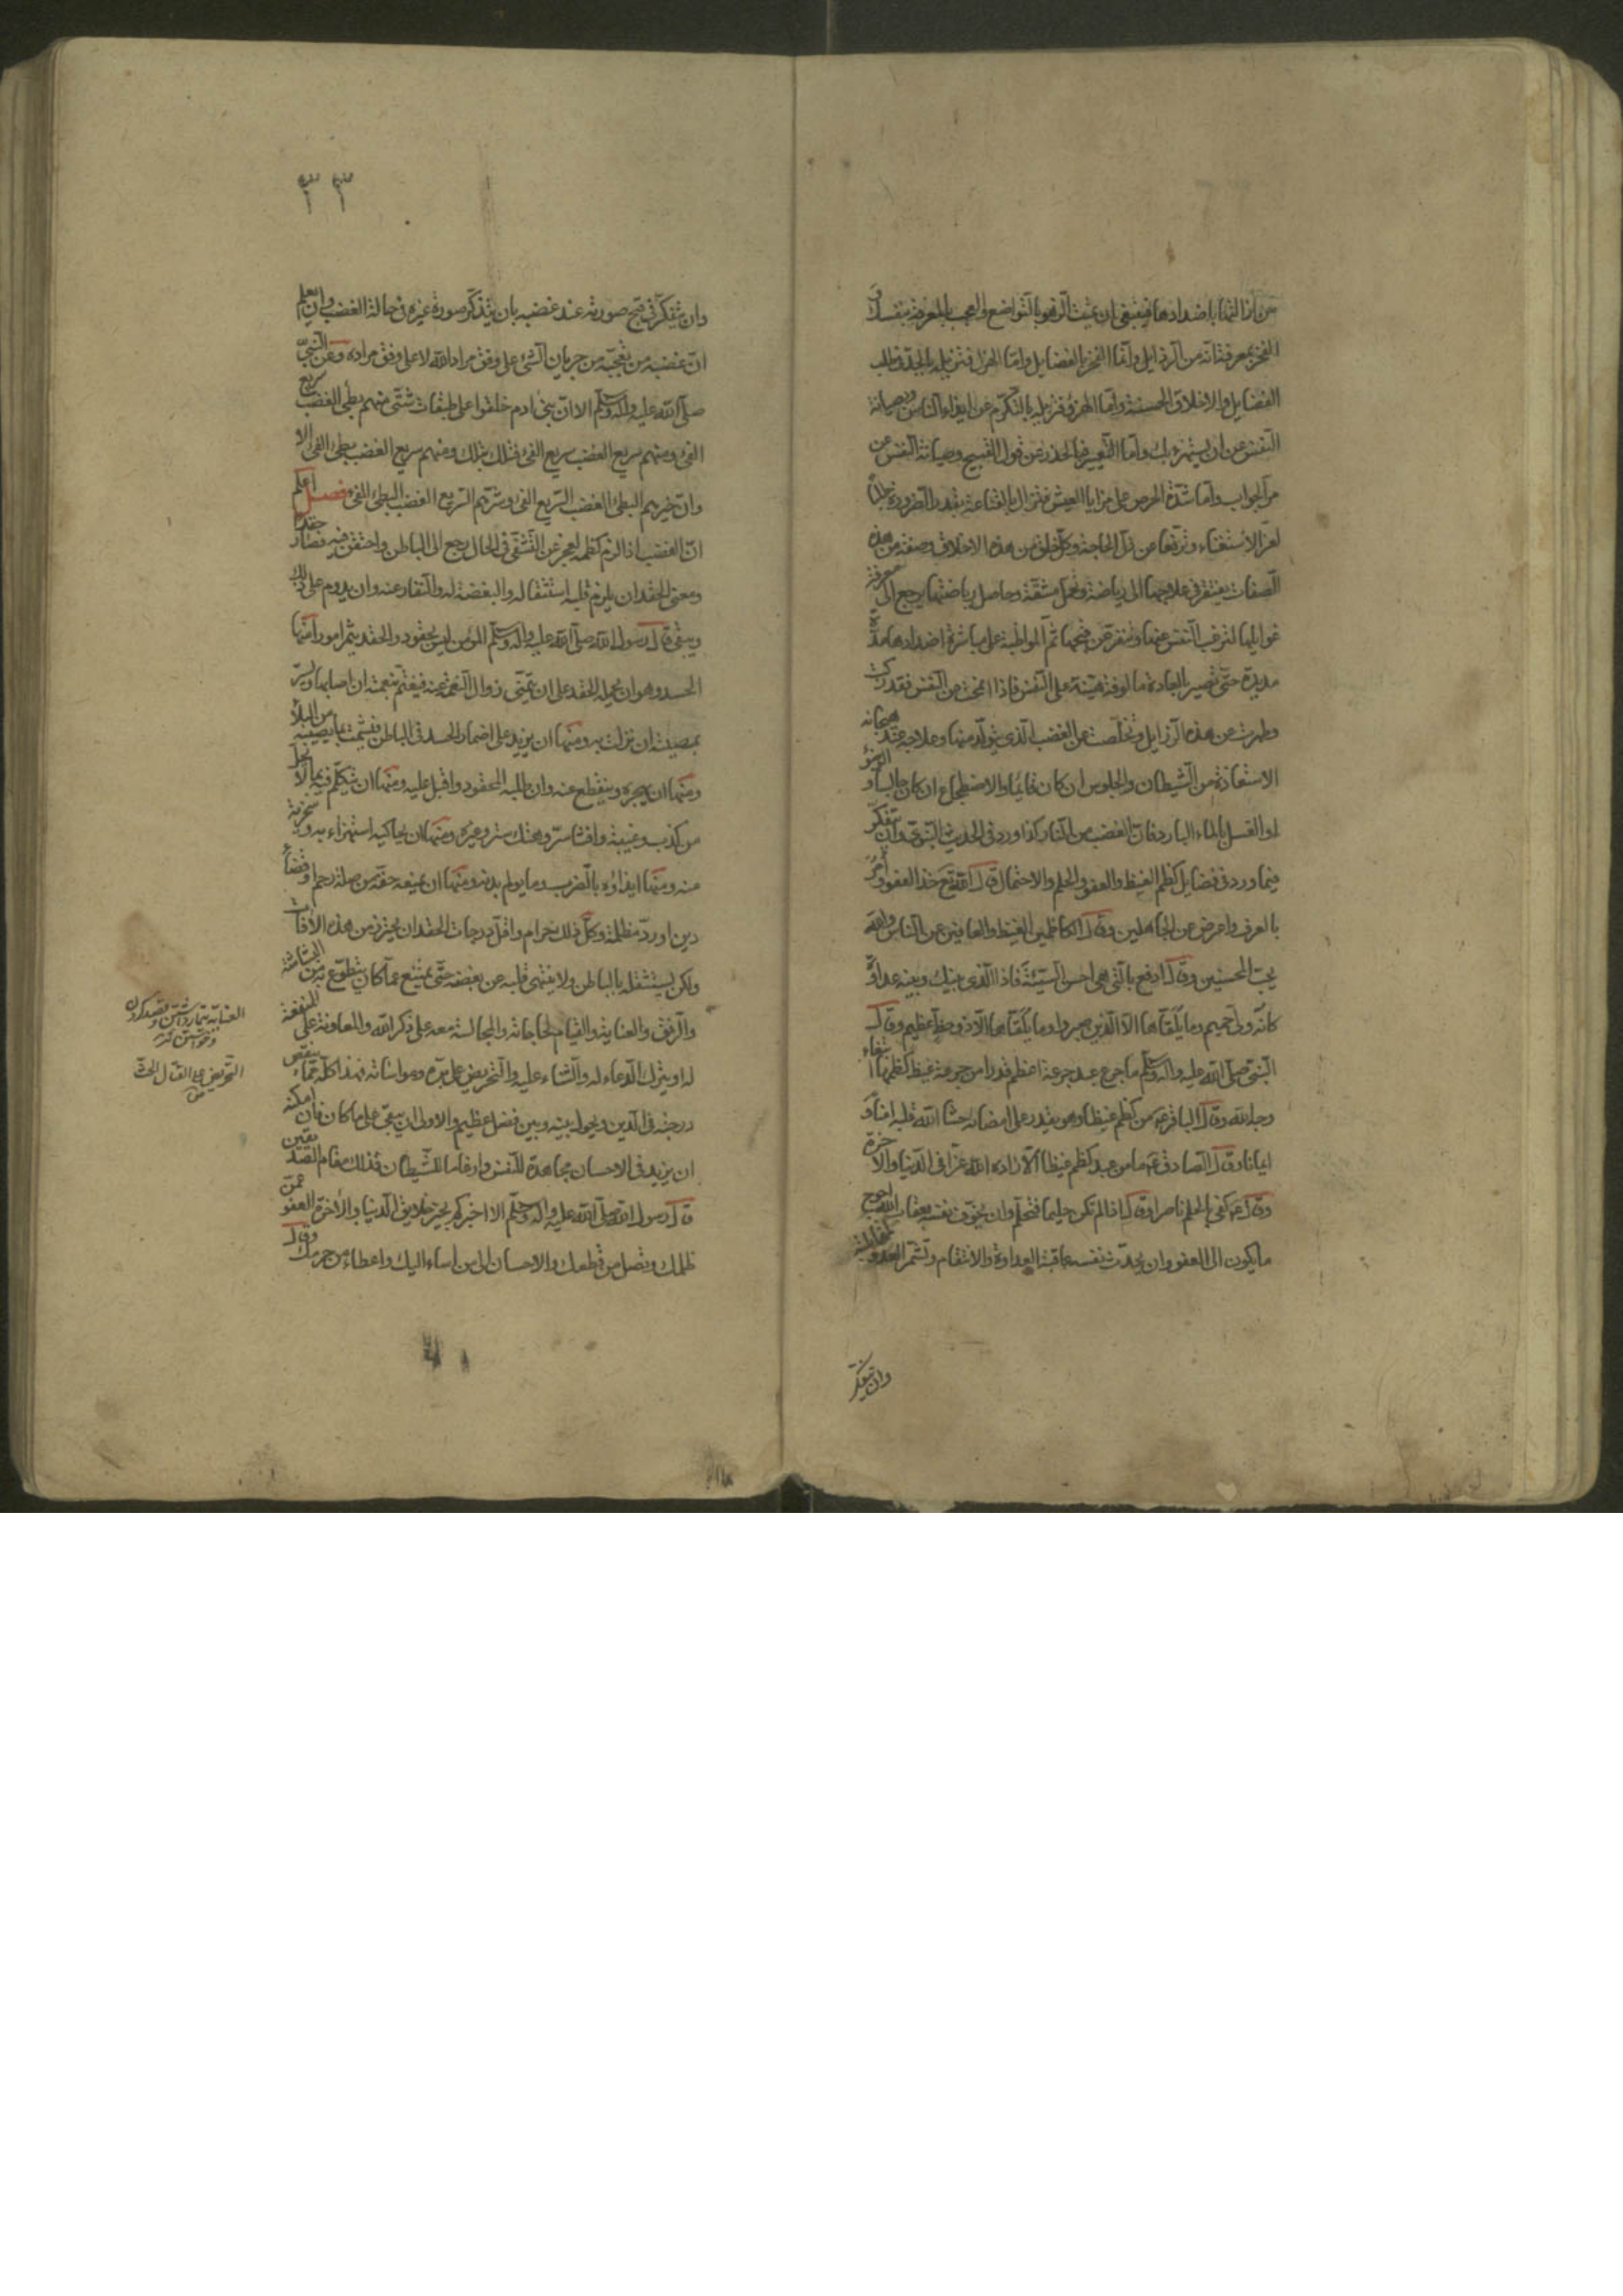 من ازالتها باضدادها فينبغي ان تميت الزهو بالتواضع والعجب بالمعرفة بنفسك و
الفخر بمعرفة انه من الرذايل وانما الفخر بالفضايل واما الهزل فتزيله بالجد في طلب
الفضايل والاخلاق الحسنة واما الهزؤ فتزيله بالتكرم عن ايذاء الناس وبصيانة
النفس عن ان يستهزء بك واما التعيير فبالحذر عن قول القبيح وصيانة النفس عن
مر الجواب واما شدة الحرص على مزايا العيش فتزال بالقناعة بقدر الضرورة طلبا
لعز الاستغناء وترفعا عن ذل الحاجة وكل خلق من هذه الاخلاق وصفة من هذه
الصفات يفتقر في علاجها الى رياضة وتحمل مشقة وحاصل رياضتها يرجع الى معرفة
غوايلها لترغب النفس عنها وتنفر عن قبحها ثم المواظبة على مباشرة اضدادها مدة
مديدة حتى تصير بالعادة مالوفة هينة على النفس فاذا انمحت عن النفس فقد زكت
وطهرت عن هذه الرذايل وتخلصت عن الغضب الذي يتولد منها وعلاجه عند هيجانه
الاستعاذة من الشيطان والجلوس ان كان قائما والاضطجاع ان كان جالسا والوضوء
او الغسل بالماء البارد فان الغضب من النار كذا ورد في الحديث النبوي وان يتفكر
فيما ورد في فضايل كظم الغيظ والعفو والحلم والاحتمال قال الله تع خذ العفو وأمر
بالعرف واعرض عن الجاهلين وقال الكاظمين الغيظ والعافين عن الناس والله
يحب المحسنين وقال ادفع بالتي هي احسن السيئة فاذا الذي بينك وبينه عداوة
كانه ولي حميم وما يلقاها الا الذين صبروا وما يلقاها الا ذو حظ عظيم وقال
النبي صلى الله عليه واله وسلم ما جرع عبد جرعة اعظم قدرا من جرعة غيظ كظمها ابتغاء
وجه الله وقال الباقر ع من كظم غيظا وهو يقدر على امضائه حشا الله قلبه امنا و
ايمانا وقال الصادق ع ما من عبد كظم غيظا الا زاده الله عزا في الدنيا والاخرة
وقال ع كفى بالحلم ناصرا وقال اذا لم تكن حليما فتحلم وان يخوف نفسه بعقاب الله احوج
ما يكون الى العفو وان يحدث نفسه عاقبة العداوة والانتقام وتشمر العدو لمقابلته
وان يتفكر
٣٣
وان يتفكر في قبح صورته عند غضبه بان يتذكر صورة غيره في حالة الغضب وان يعلم
ان غضبه من تعجبه من جريان الشيء على وفق مراد الله لا على وفق مراده وعن النبي
صلى الله عليه واله وسلم الا ان بني ادم خلقوا على طبقات شتى منهم بطيء الغضب سريع
الفيء ومنهم سريع الغضب سريع الفيء فتلك بتلك ومنهم سريع الغضب بطيء الفيء الا
وان خيرهم البطيء الغضب السريع الفيء وشرهم السريع الغضب البطيء الفيء فصل اعلم
ان الغضب اذا لزم كظمه لعجز عن التشفي في الحال رجع الى الباطن واحتقن فيه فصار حقدا
ومعنى الحقد ان يلزم قلبه استثقاله والبغضة له والنفار عنه وان يدوم على ذلك
ويبقى قال رسول الله صلى الله عليه واله وسلم المؤمن ليس بحقود والحقد يثمر امورا منها
الحسد وهو ان يحمله الحقد على ان يتمنى زوال النعمة عنه فيغتم بنعمة ان اصابها ويسر
بمصيبة ان نزلت به ومنها ان يزيد على اضمار الحسد في الباطن فيشمت بما يصيبه من البلاء
ومنها ان يهجره وينقطع عنه وان طلبه المحقود واقبل عليه ومنها ان يتكلم فيه بما لا يحل
من كذب وغيبة وافشاء سر وهتك ستر وغيره ومنها ان يحاكيه استهزاء به وسخرية
منه ومنها ايذاؤه بالضرب وما يولم بدنه ومنها ان يمنعه حقه من صلة رحم او قضاء
دين او رد مظلمة وكل ذلك حرام واقل درجات الحقد ان يحترز من هذه الافات
ولكن يستثقله بالباطن ولا ينتهي قلبه عن بغضه حتى يمتنع عما كان يتطوع به من البشاشة
والرفق والعناية والقيام لحاجاته والمجالسة معه على ذكر الله والمعاونة على المنفعة
له او يترك الدعاء له والثناء عليه والتحريض على بره ومواساته فهذا كله مما ينقص
درجته في الدين ويحول بينه وبين فضل عظيم والاولى ان يبقى على ما كان فان امكنه
ان يزيد في الاحسان مجاهدة للنفس وارغاما للشيطان فذلك مقام الصديقين
قال رسول الله صلى الله عليه واله وسلم الا اخبركم بخير خلايق الدنيا والاخرة العفو عمن
ظلمك وتصل من قطعك والاحسان الى من اساء اليك واعطاء من حرمك وقال
العناية تيمار داشتن وقصد كردن
التحريض على القتال الحث
ص